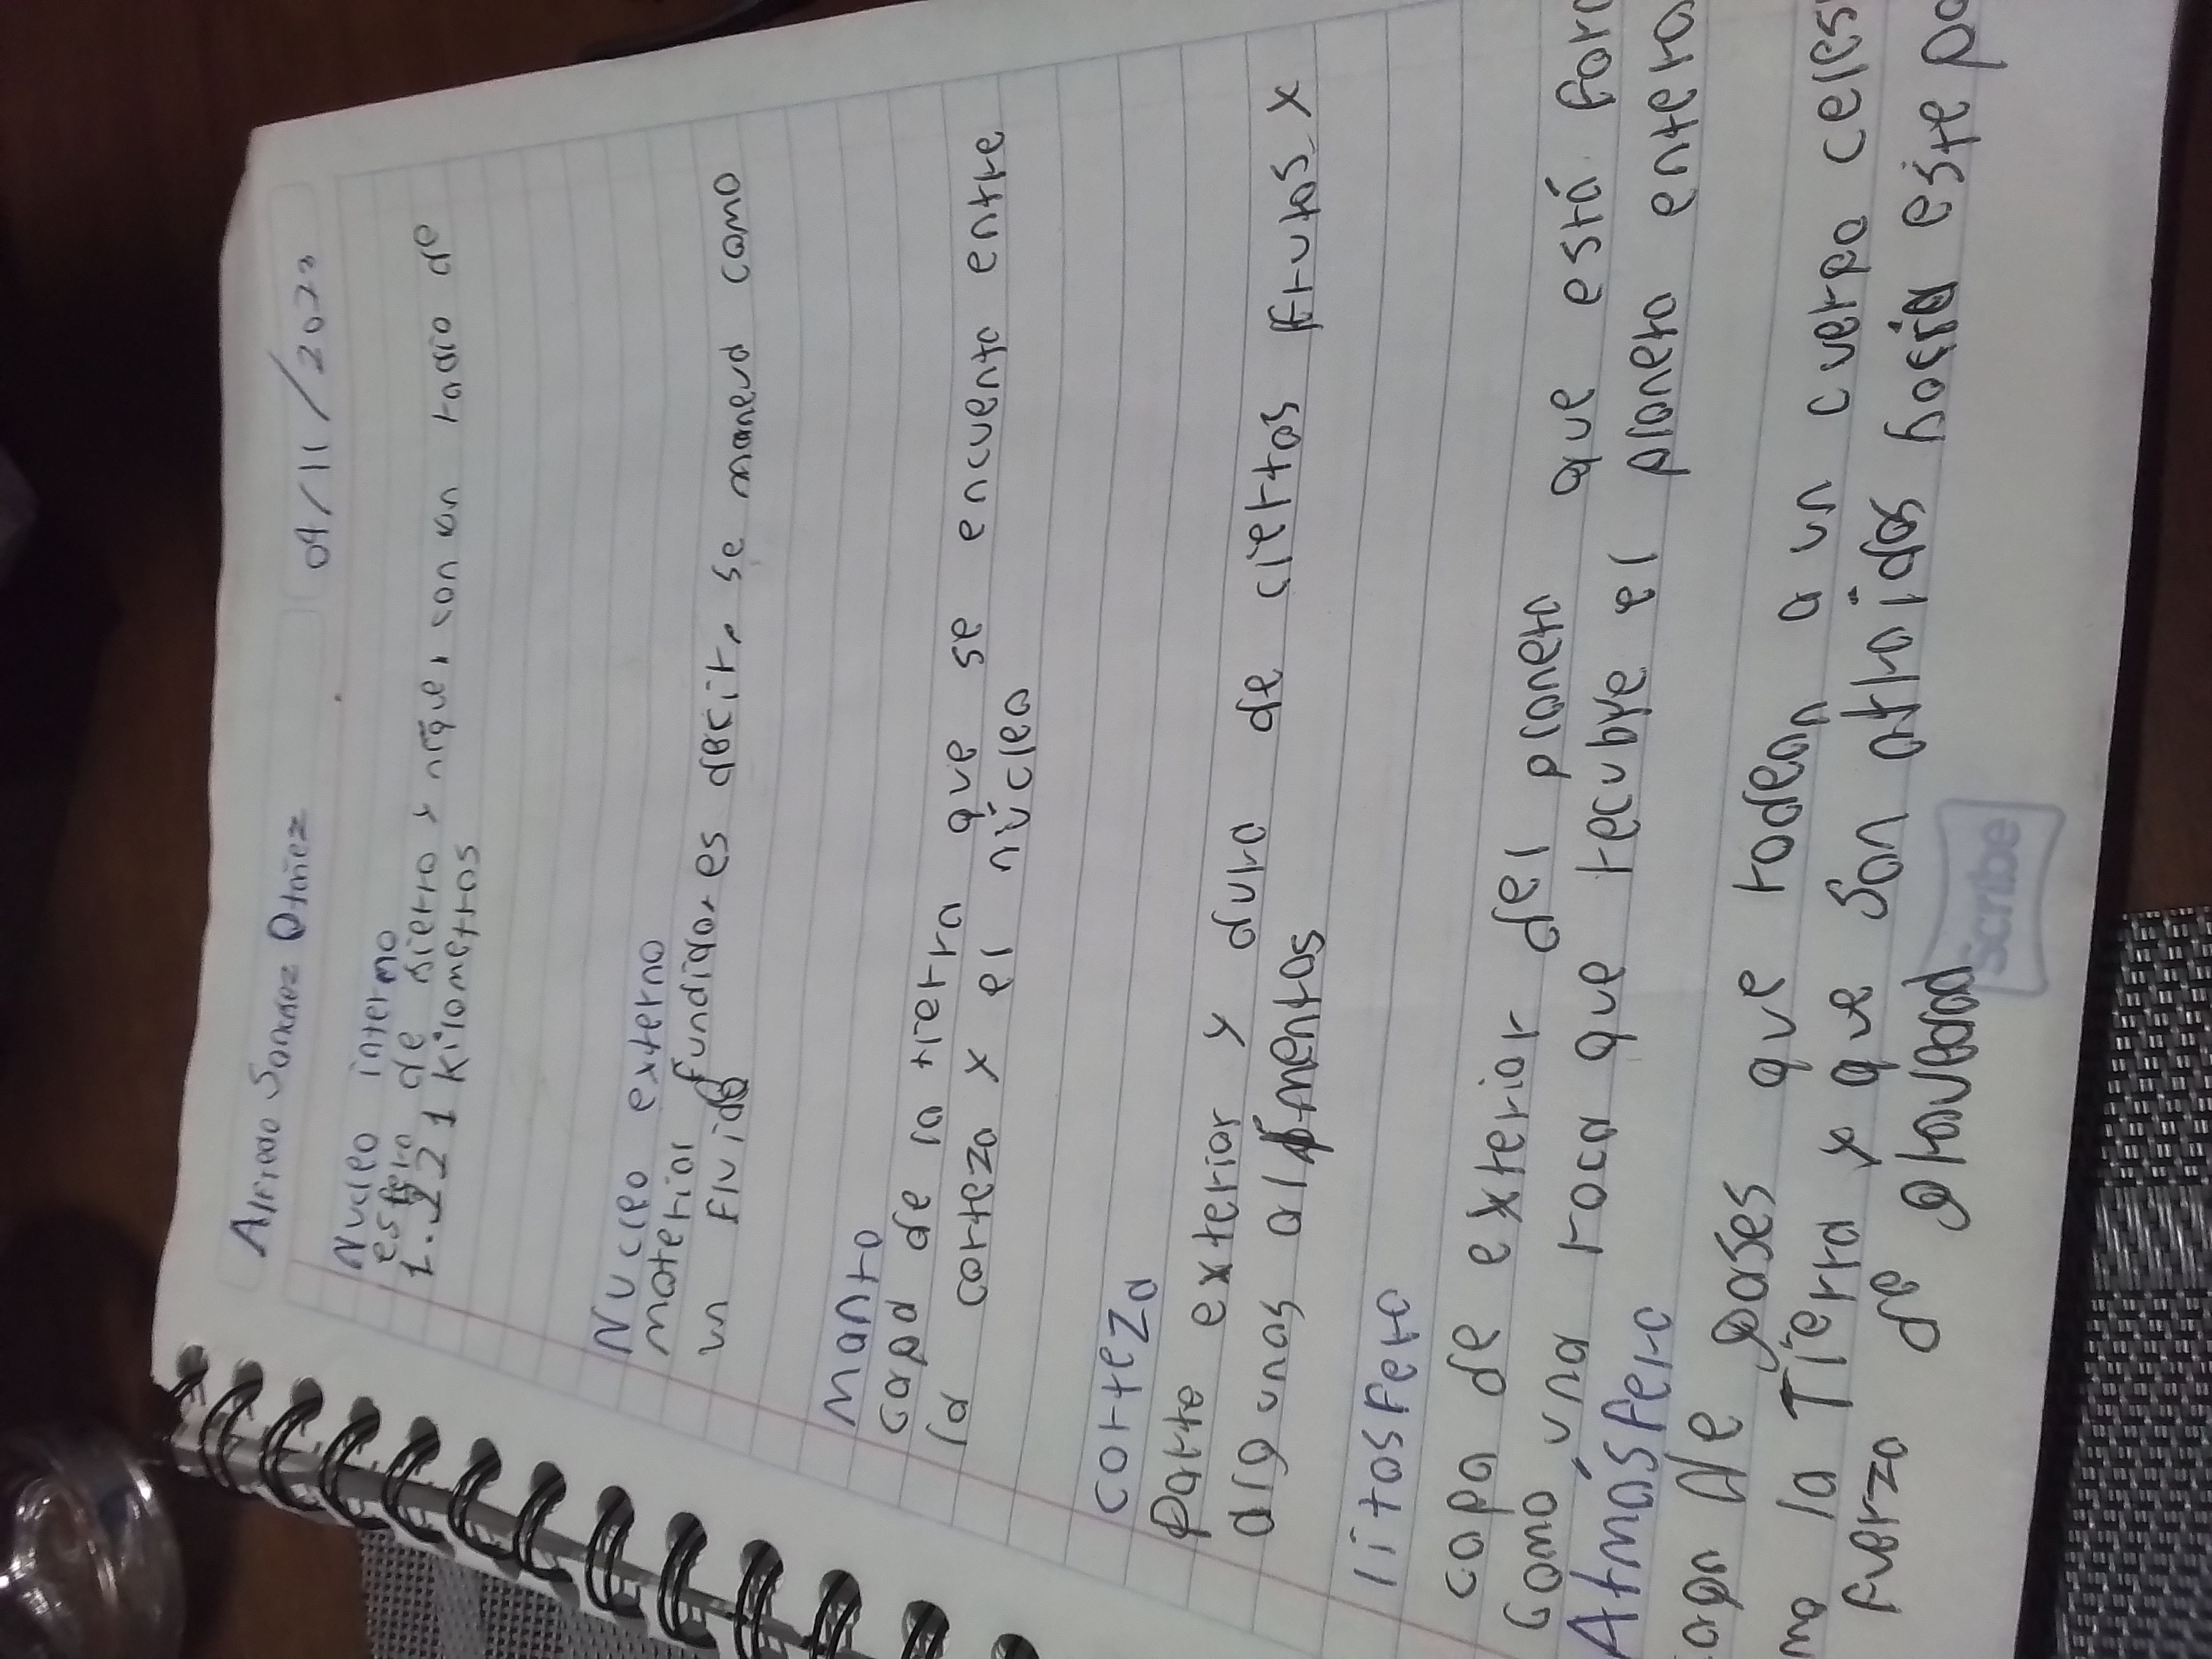 Alfredo Sanchez Otañez 04/11/2023
Nucleo interno
esfera de hierro y niquel con un radio de
1.221 kilometros
Nucleo externo
material fundido, es decir, se maneja como
un fluido
Manto
capa de la tierra que se encuenta entre
la corteza y el núcleo
corteza
Parte exterior y dura de ciertas frutas y
algunos alimentos
litosfera
capa de exterior del planeta que está for
como una roca que recubre el planeta entera
Atmósfera
capa de gases que rodean a un cuerpo celes
mo la Tierra y que son atraidos hacia este po
fuerza de gravedad
Scribe